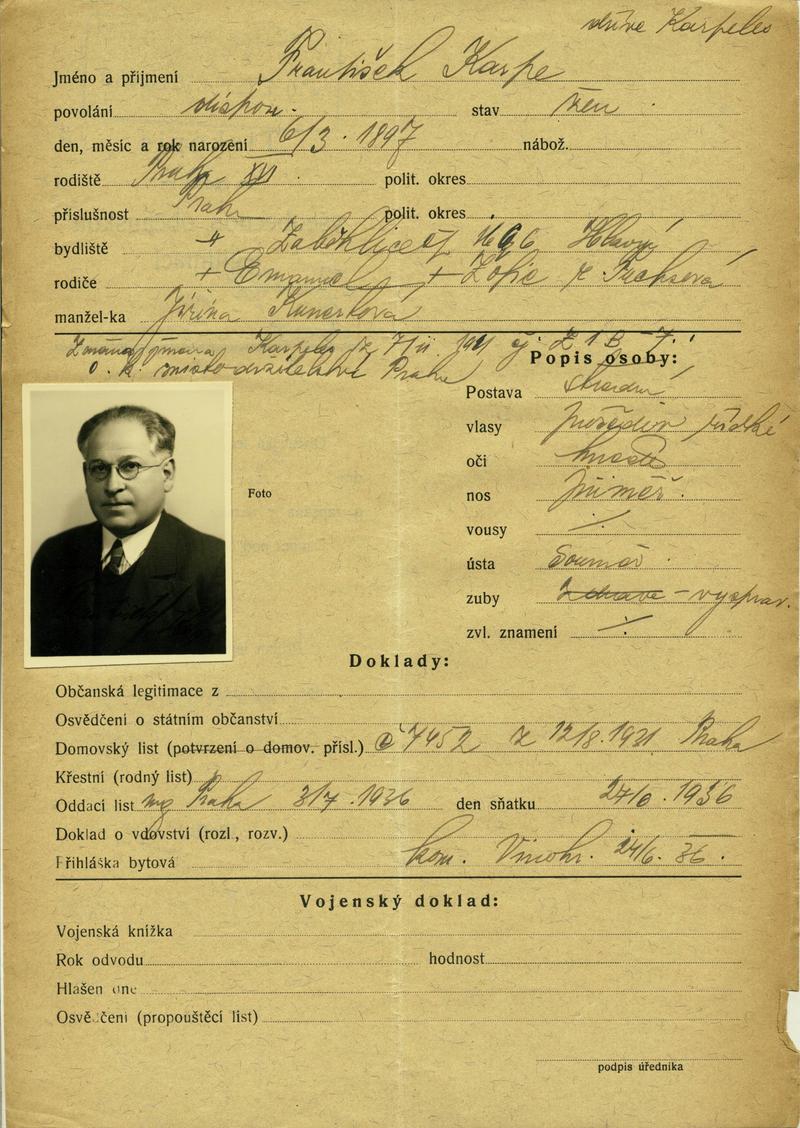 dříve Karpeles
Jméno a příjmení František Karpe
povolání dispon. stav žen.
den, měsíc a rok narození 6/3. 1897 nábož.
rodiště Praha XVI. polit. okres
příslušnost Praha polit. okres
bydliště Zaběhlice čp Hlavní
rodiče + Emanuel + Žofie r. Fuchsová
manžel-ka Jiřina
Změna jména Karpeles z
c. k. místodržitelství Praha
Popis osoby:
Postava střední
vlasy prošediv. řídké
oči hnědé
Foto
nos přiměř.
vousy ./.
ústa souměr.
zuby zdravé – vysprav.
zvl. znamení ./.
Doklady:
Občanská legitimace z
Osvědčení o státním občanství
Domovský list (potvrzení o domov. přísl.) č 7452 z 12/8. 1921 Praha
Křestní (rodný list)
Oddací list mg Praha 3/7. 1936 den sňatku 24/6. 1936
Doklad o vdovství (rozl., rozv.)
Přihláška bytová kom. Vinohr. 24/6. 36.
Vojenský doklad:
Vojenská knížka
Rok odvodu hodnost
Hlášen dne
Osvědčení (propouštěcí list)
podpis úředníka